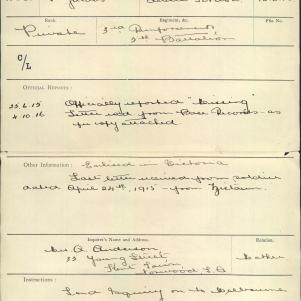 Rank. Regiment, &c. File No.
Private 3rd Reinforcements
5th Battalion
C/L
OFFICIAL REPORTS:
25.6.15 Officially reported "Missing"
4.10.16 Letter rec'd from Base Records - as
per copy attached
Other Information: Enlisted in Victoria
Last letter received from soldier
dated April 24th, 1915 - from
Inquirer's Name and Address. Relation.
Mr. A. Anderson
Young Street
Norwood S.A.
Instructions:
Send Inquiry on to Melbourne